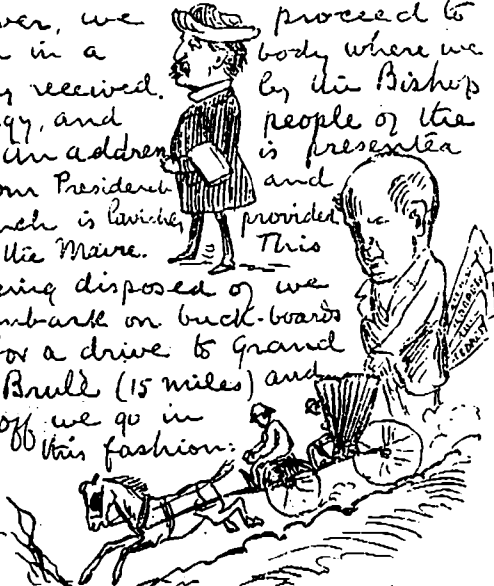 ver, we proceed to
in a body where we
received. by the Bishop
gy, and people of the
an address is presented
our President and
nch is lavishly provided
the Maire. This
eing disposed of we
mbark on buck-boards
for a drive to Grand
Brulé (15 miles) and
off we go in
this fashion: